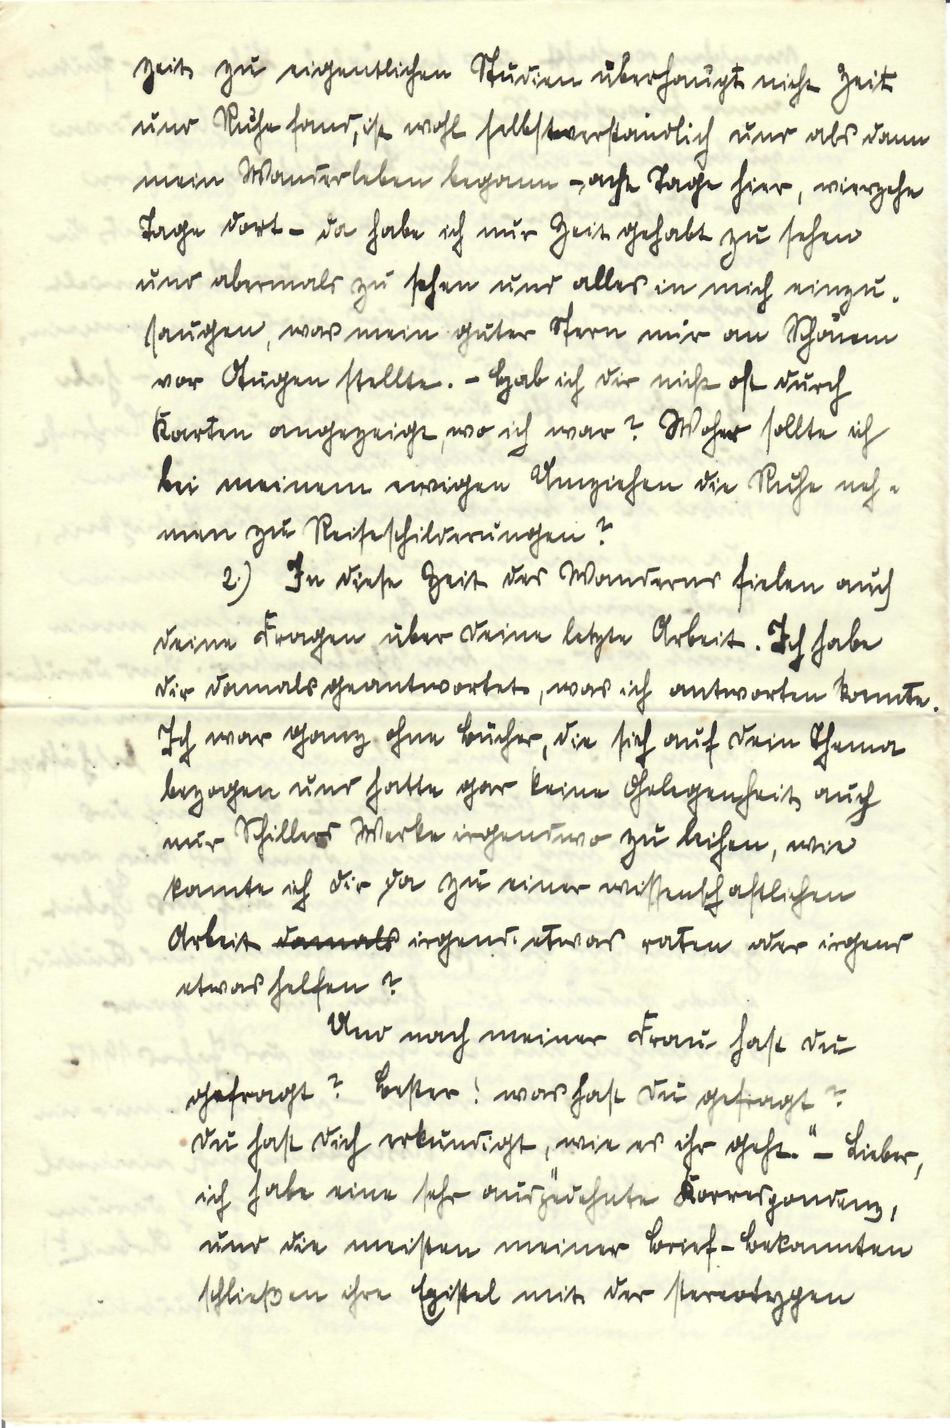 zeit zu eigentlichen Studien überhaupt nicht Zeit
und Ruhe fand, ist wohl selbstverständlich und als dann
mein Wanderleben begann - acht Tage hier, vierzehn
Tage dort - da habe ich nur Zeit gehabt zu sehen
und abermals zu sehen und alles in mich einzu-
saugen, was mein guter Stern mir an Schönem
vor Augen stellte. - Hab ich dir nicht oft durch
Karten angezeigt, wo ich war? Woher sollte ich
bei meinem ewigen Umziehen die Ruhe neh-
men zu Reiseschilderungen?
2.) In diese Zeit des Wanderns fielen auch
deine Fragen über deine letzte Arbeit. Ich habe
dir damals geantwortet, was ich antworten konnte.
Ich war ganz ohne Bücher, die sich auf dein Thema
bezogen und hatte gar keine Gelegenheit auch
nur Schillers Werke irgendwo zu leihen, wie
konnte ich dir da zu einer wissenschaftlichen
Arbeit damals irgend etwas raten oder irgend
etwas helfen?
Und nach meiner Frau hast du
gefragt? Bester! was hast du gefragt?
Du hast dich erkundigt, wie es ihr geht." - Lieber,
ich habe eine sehr ausgedehnte Korrespondenz,
und die meisten meiner Brief-Bekannten
schließen ihre Epistel mit der stereotypen